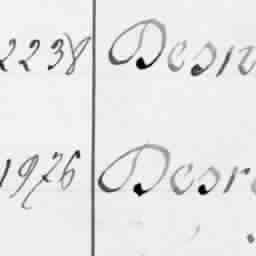 2238 Desr
1976 Desr